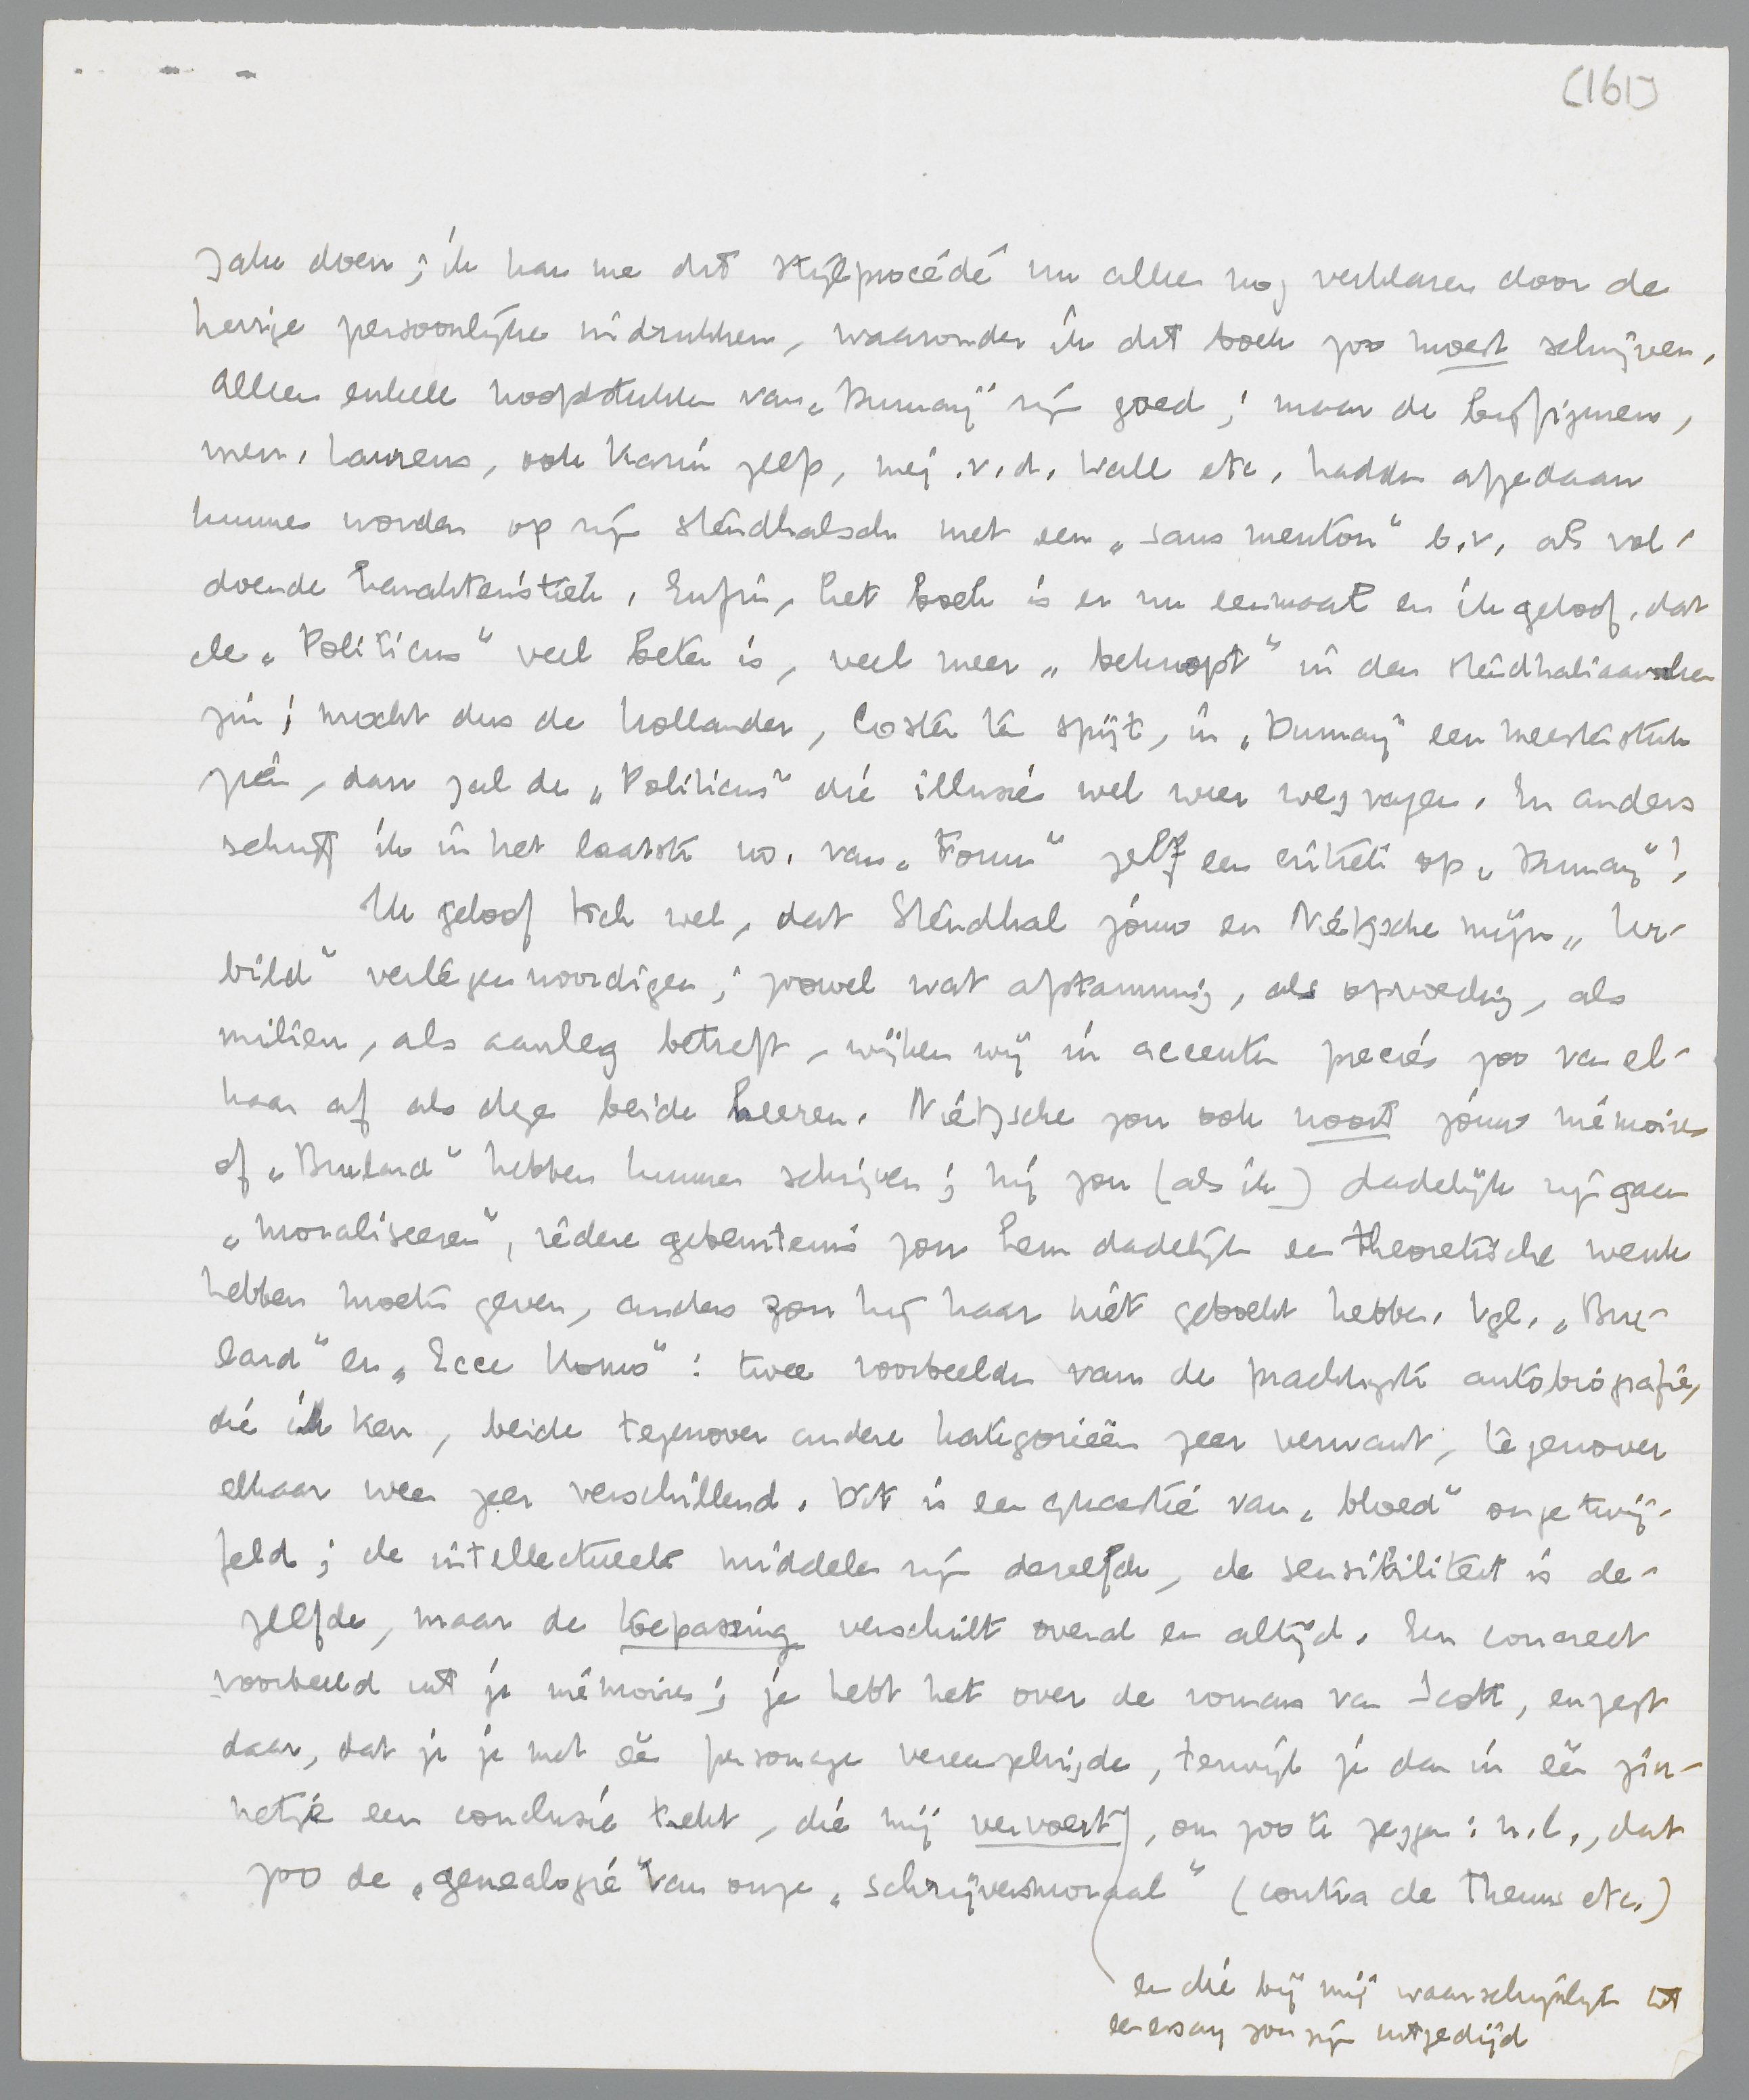 [161]
zake doen; ik kan me dit stijlprocédé nu alleen nog verklaren door de
hevige persoonlijke indrukken, waaronder ik dit boek zoo moest schrijven.
Alleen enkele hoofdstukken van „Dumay” zijn goed; maar de bijfiguren,
mevr. Laurens, ook Karin zelf, mej. v.d. Wall etc. hadden afgedaan
kunnen worden op zijn stendhalsch met een „sans menton” b.v. als vol-
doende karakteristiek. Enfin, het boek is er nu eenmaal en ik geloof, dat
de „Politicus” veel beter is, veel meer „beknopt” in den stendhaliaanschen
zin; mocht dus de hollander, Coster ten spijt, in „Dumay” een meesterstuk
zien, dan zal de „Politicus” die illusie wel weer wegvagen. En anders
schrijf ik in het laatste no. van „Forum” zelf een critiek op „Dumay”!
Ik geloof toch wel, dat Stendhal jóuw en Nietzsche mijn „Ur-
bild” vertegenwoordigen; zoowel wat afstamming, als opvoeding, als
milieu, als aanleg betreft, wijken wij in accenten precies zoo van el-
kaar af als deze beide heeren. Nietzsche zou ook nooit jóuw mémoires
of „Brulard” hebben kunnen schrijven; hij zou (als ik) dadelijk zijn gaan
„moraliseeren”, iedere gebeurtenis zou hem dadelijk een theoretische wenk
hebben moeten geven, anders zou hij haar niet geboekt hebben. Vgl. „Bru-
lard” en „Ecce Homo”: twee voorbeelden van de prachtigste autobiografie,
die ik ken, beide tegenover andere kategorieën zeer verwant, tegenover
elkaar weer zeer verschillend. Dit is een quaestie van „bloed” ongetwij-
feld; de intellectueele middelen zijn dezelfde, de sensibiliteit is de-
zelfde, maar de toepassing verschilt overal en altijd. Een concreet
voorbeeld uit je mémoires; je hebt het over de romans van Scott, en zegt
daar, dat je je met één personage vereenzelvigde, terwijl je dan in één zin-
netje een conclusie trekt, die mij vervoert, om zoo te zeggen: n.l., dat
zoo de „genealogie” van onze „schrijversmoraal” (contra de Theuns etc.)
en die bij mij waarschijnlijk tot
een essay zou zijn uitgedijd